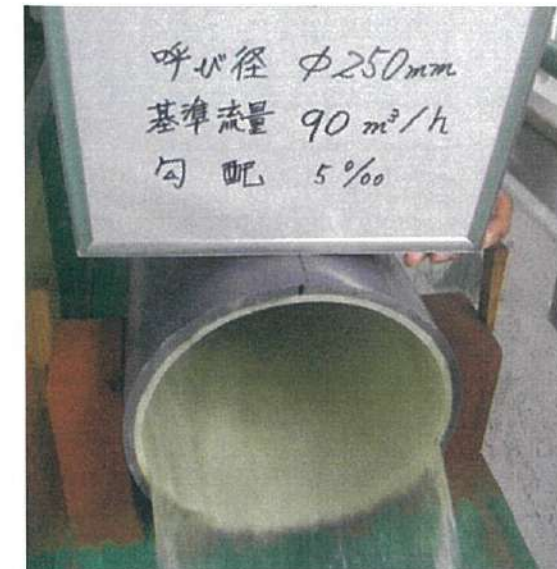 呼び径 φ250mm
基準流量 90 m³/h
勾配 5‰